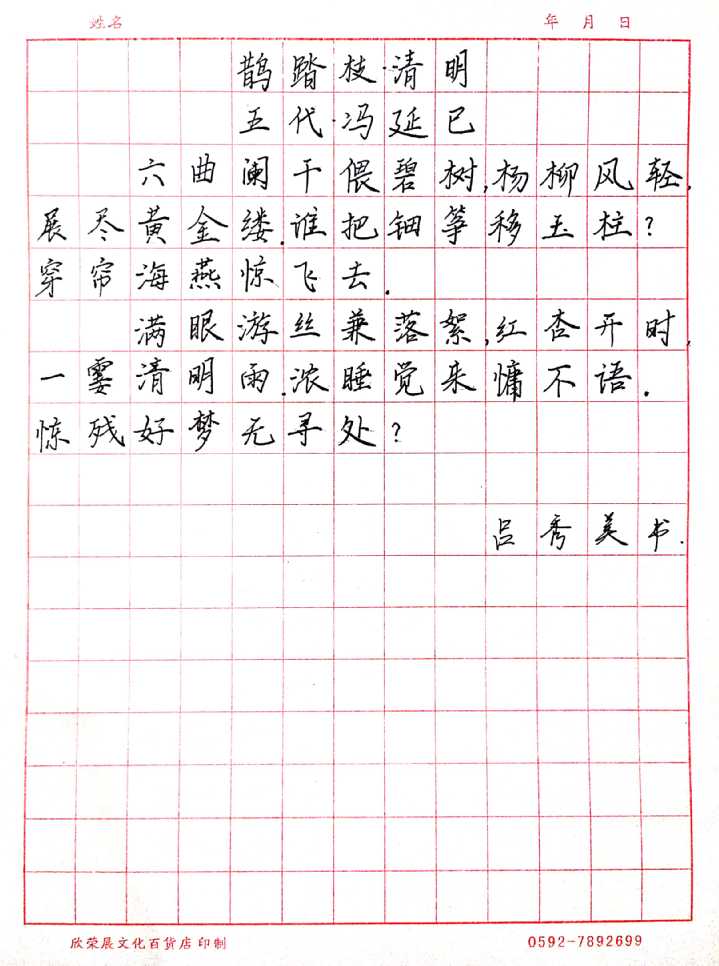 姓名 年 月 日
鹊踏枝·清明
五代·冯延已
六曲阑干偎碧树,杨柳风轻,
展尽黄金缕.谁把钿筝移玉柱?
穿帘海燕惊飞去.
满眼游丝兼落絮,红杏开时,
一霎清明雨.浓睡觉来慵不语.
惊残好梦无寻处?
吕秀美书.
欣荣展文化百货店印制 0592-7892699